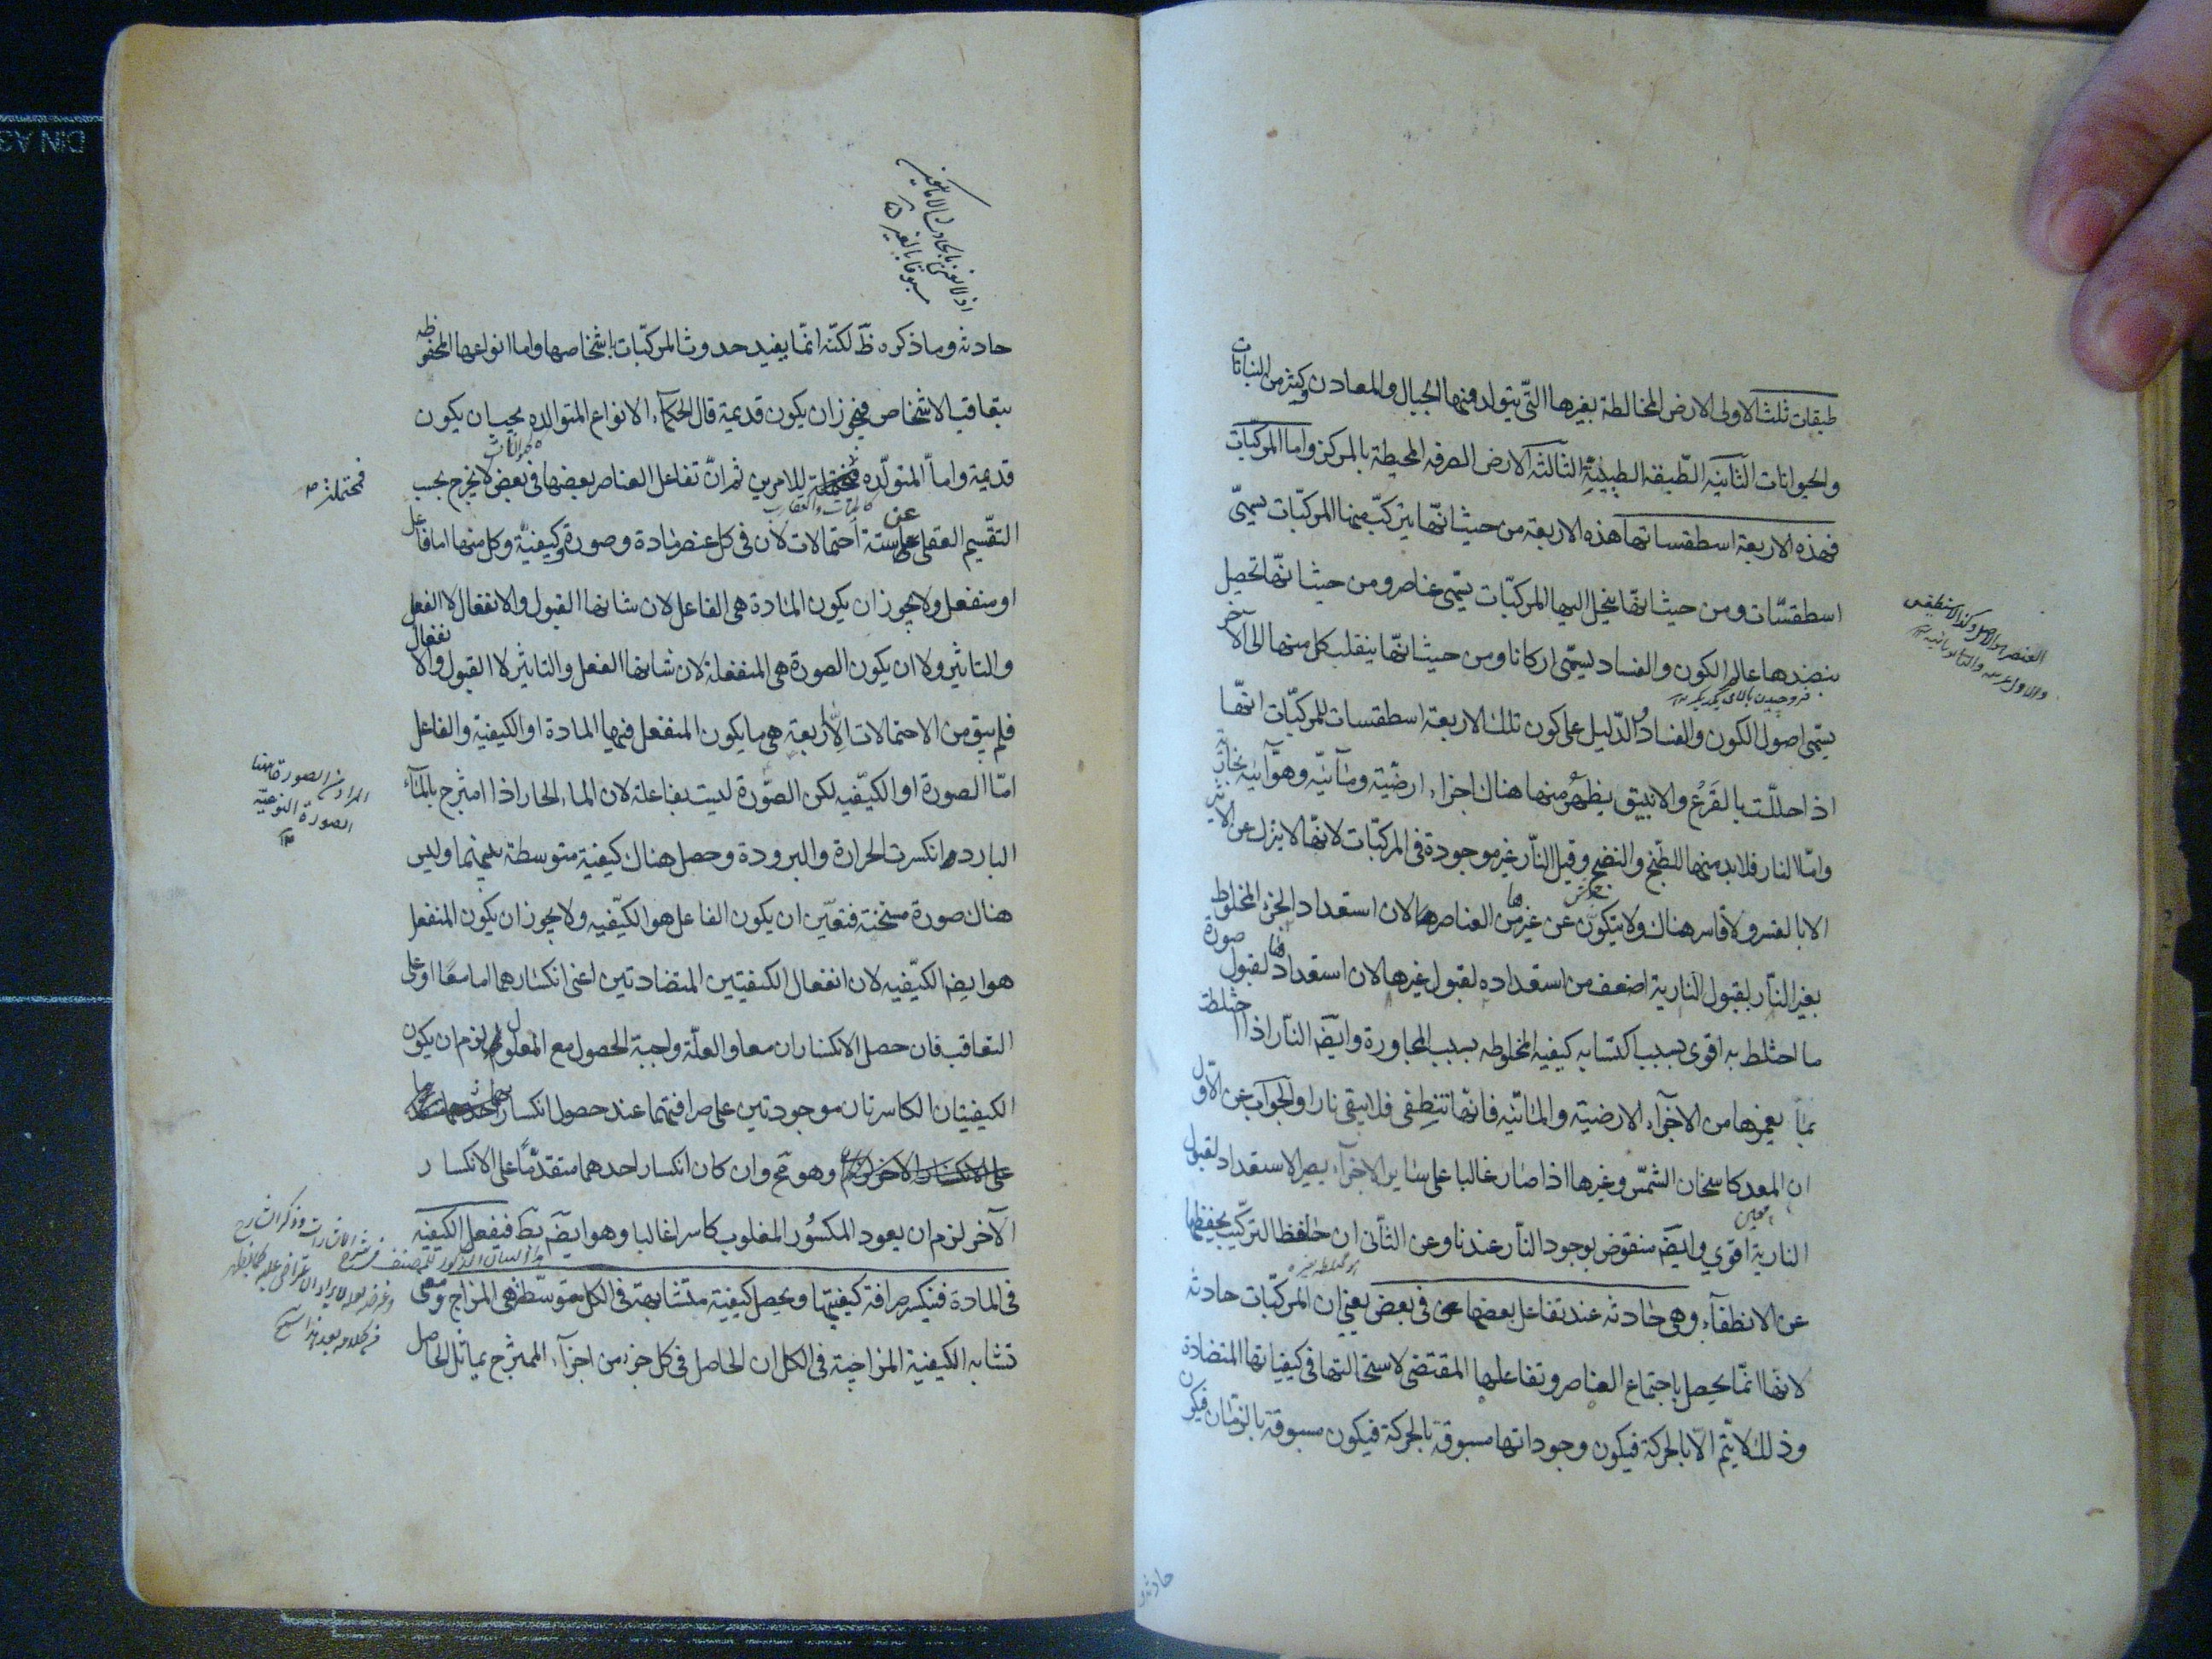 طبقات ثلث الاولى الارض المخالطة بغيرها التّى يتولد فيها الجبال والمعادن وكثير من النباتات
والحيوانات الثانيه الطّبقه الطينيّة الثالثه الارض الصرفه المحيطة بالمركز واما المركّبات
فهذه الاربعة اسطقساتها هذه الاربعة من حيث انّها يتركّب منها المركّبات يسمّى
اسطقسّات ومن حيث انّها ينحل اليها المركّبات يسمّى عناصر ومن حيث انّها تحصل
بنضدها عالم الكون والفساد يسمّى اركانا ومن حيث انّها ينقلب كل منها الى الآخر
يسمّى اصول الكون والفساد والدّليل على كون تلك الاربعة اسطقسات للمركّبات انّها
اذا حلّلت بالقَرْع والانبيق يظهر منها هناك اجزاء ارضيّة ومائيّه وهوآئيه بخاريّه
وامّا النار فلا بد منها للطّبخ والنضج وقيل النّار غير موجودة فى المركّبات لانّها لا ينزل عن الاثير
الا بالقسر ولا قاسر هناك ولا يتكوّن عن غيرها من العناصر لان استعداد الجزء المخلوط
بغير النّار لقبول النارية اضعف من استعداده لقبول غيرها لان استعدادها لقبول صورة
ما اختلط به اقوى بسبب اكتسابه كيفيه المخلوطه بسبب المجاورة وايضً النّار اذا اختلطت
بما يغمرها من الاجزآء الارضيّة والمائيّه فانّها تنطفى فلا يبقى نارا والجواب عن الاوّل
ان المعد كاسخان الشمس وغيرها اذا صار غالبا على ساير الاجزآء يصير الاستعداد لقبول
النارية اقوي وايضً منقوض بوجود النّار عندنا وعن الثّانى ان حافظ التركيب يحفظها
عن الانطفآء وهى حادثه عند تفاعل بعضها فى بعض يعنى ان المركّبات حادثه
لانها انّما يحصل باجتماع العناصر وتفاعلها المقتضى لاستحالتها فى كيفياتها المتضادة
وذلك لا يتّم الّا بالحركة فيكون وجوداتها مسبوقة بالحركة فيكون مسبوقة بالزمان فيكون
حادثه و
حادثه وما ذكره ظّ لكنّه انمّا يفيد حدوث المركّبات باشخاصها واما انواعها المحفوظه
بتعاقب الاشخاص فيجوز ان يكون قديمة قال الحكمآء الانواع المتوالده يجب ان يكون
قديمة وامّا المتولّده فمحتملة للامرين ثم انّ تفاعل العناصر بعضها فى بعض لا يخرج بحسب
التقّسيم العقلى عن ستة احتمالات لان فى كل عنصر مادة وصورة وكيفيّة وكل منها اما فاعل
او منفعل ولا يجوز ان يكون المادة هى الفاعل لان شانها القبول والانفعال لا الفعل
والتاثير ولا ان يكون الصورة هى المنفعلة لان شانها الفعل والتاثير لا القبول والانفعال
فلم يبق من الاحتمالات الّا اربعة هى ما يكون المنفعل فيها المادة او الكيفية والفاعل
امّا الصورة او الكيّفيه لكن الصّورة ليست بفاعلة لان الماء الحار اذا امتزج بالمآء
البارد انكسرت الحرارة والبرودة وحصل هناك كيفية متوسطة بينهما وليس
هناك صورة مسخنة فتعيّن ان يكون الفاعل هو الكيّفيه ولا يجوز ان يكون المنفعل
هو ايضً الكيّفيه لان انفعال الكيفيتين المتضادتين اعنى انكسارهما اما معًا او على
التعاقب فان حصل الانكساران معا والعلّة واجبة الحصول مع المعلول لزم ان يكون
الكيفيتان الكاسرتان موجودتين على صرافتهما عند حصول انكساريهما
وهو مّح وان كان انكسار احدهما متقدّمًا على الانكسار
الآخر لزم ان يعود المكسُور المغلوب كاسرا غالبا وهو ايضً بّط فيفعل الكيفيه
فى المادة فتنكسر صرافة كيفيتها ويحصل كيفية متشابهة فى الكل متوسّطة هى المزاج ومعنى
تشابه الكيفية المزاجيّة فى الكل ان الحاصل فى كل جزء من اجزآء الممتزج يماثل الحاصل
فمحتملة
كالحيات والعقارب
المراد من الصورة هاهنا
الصورة النوعيّه